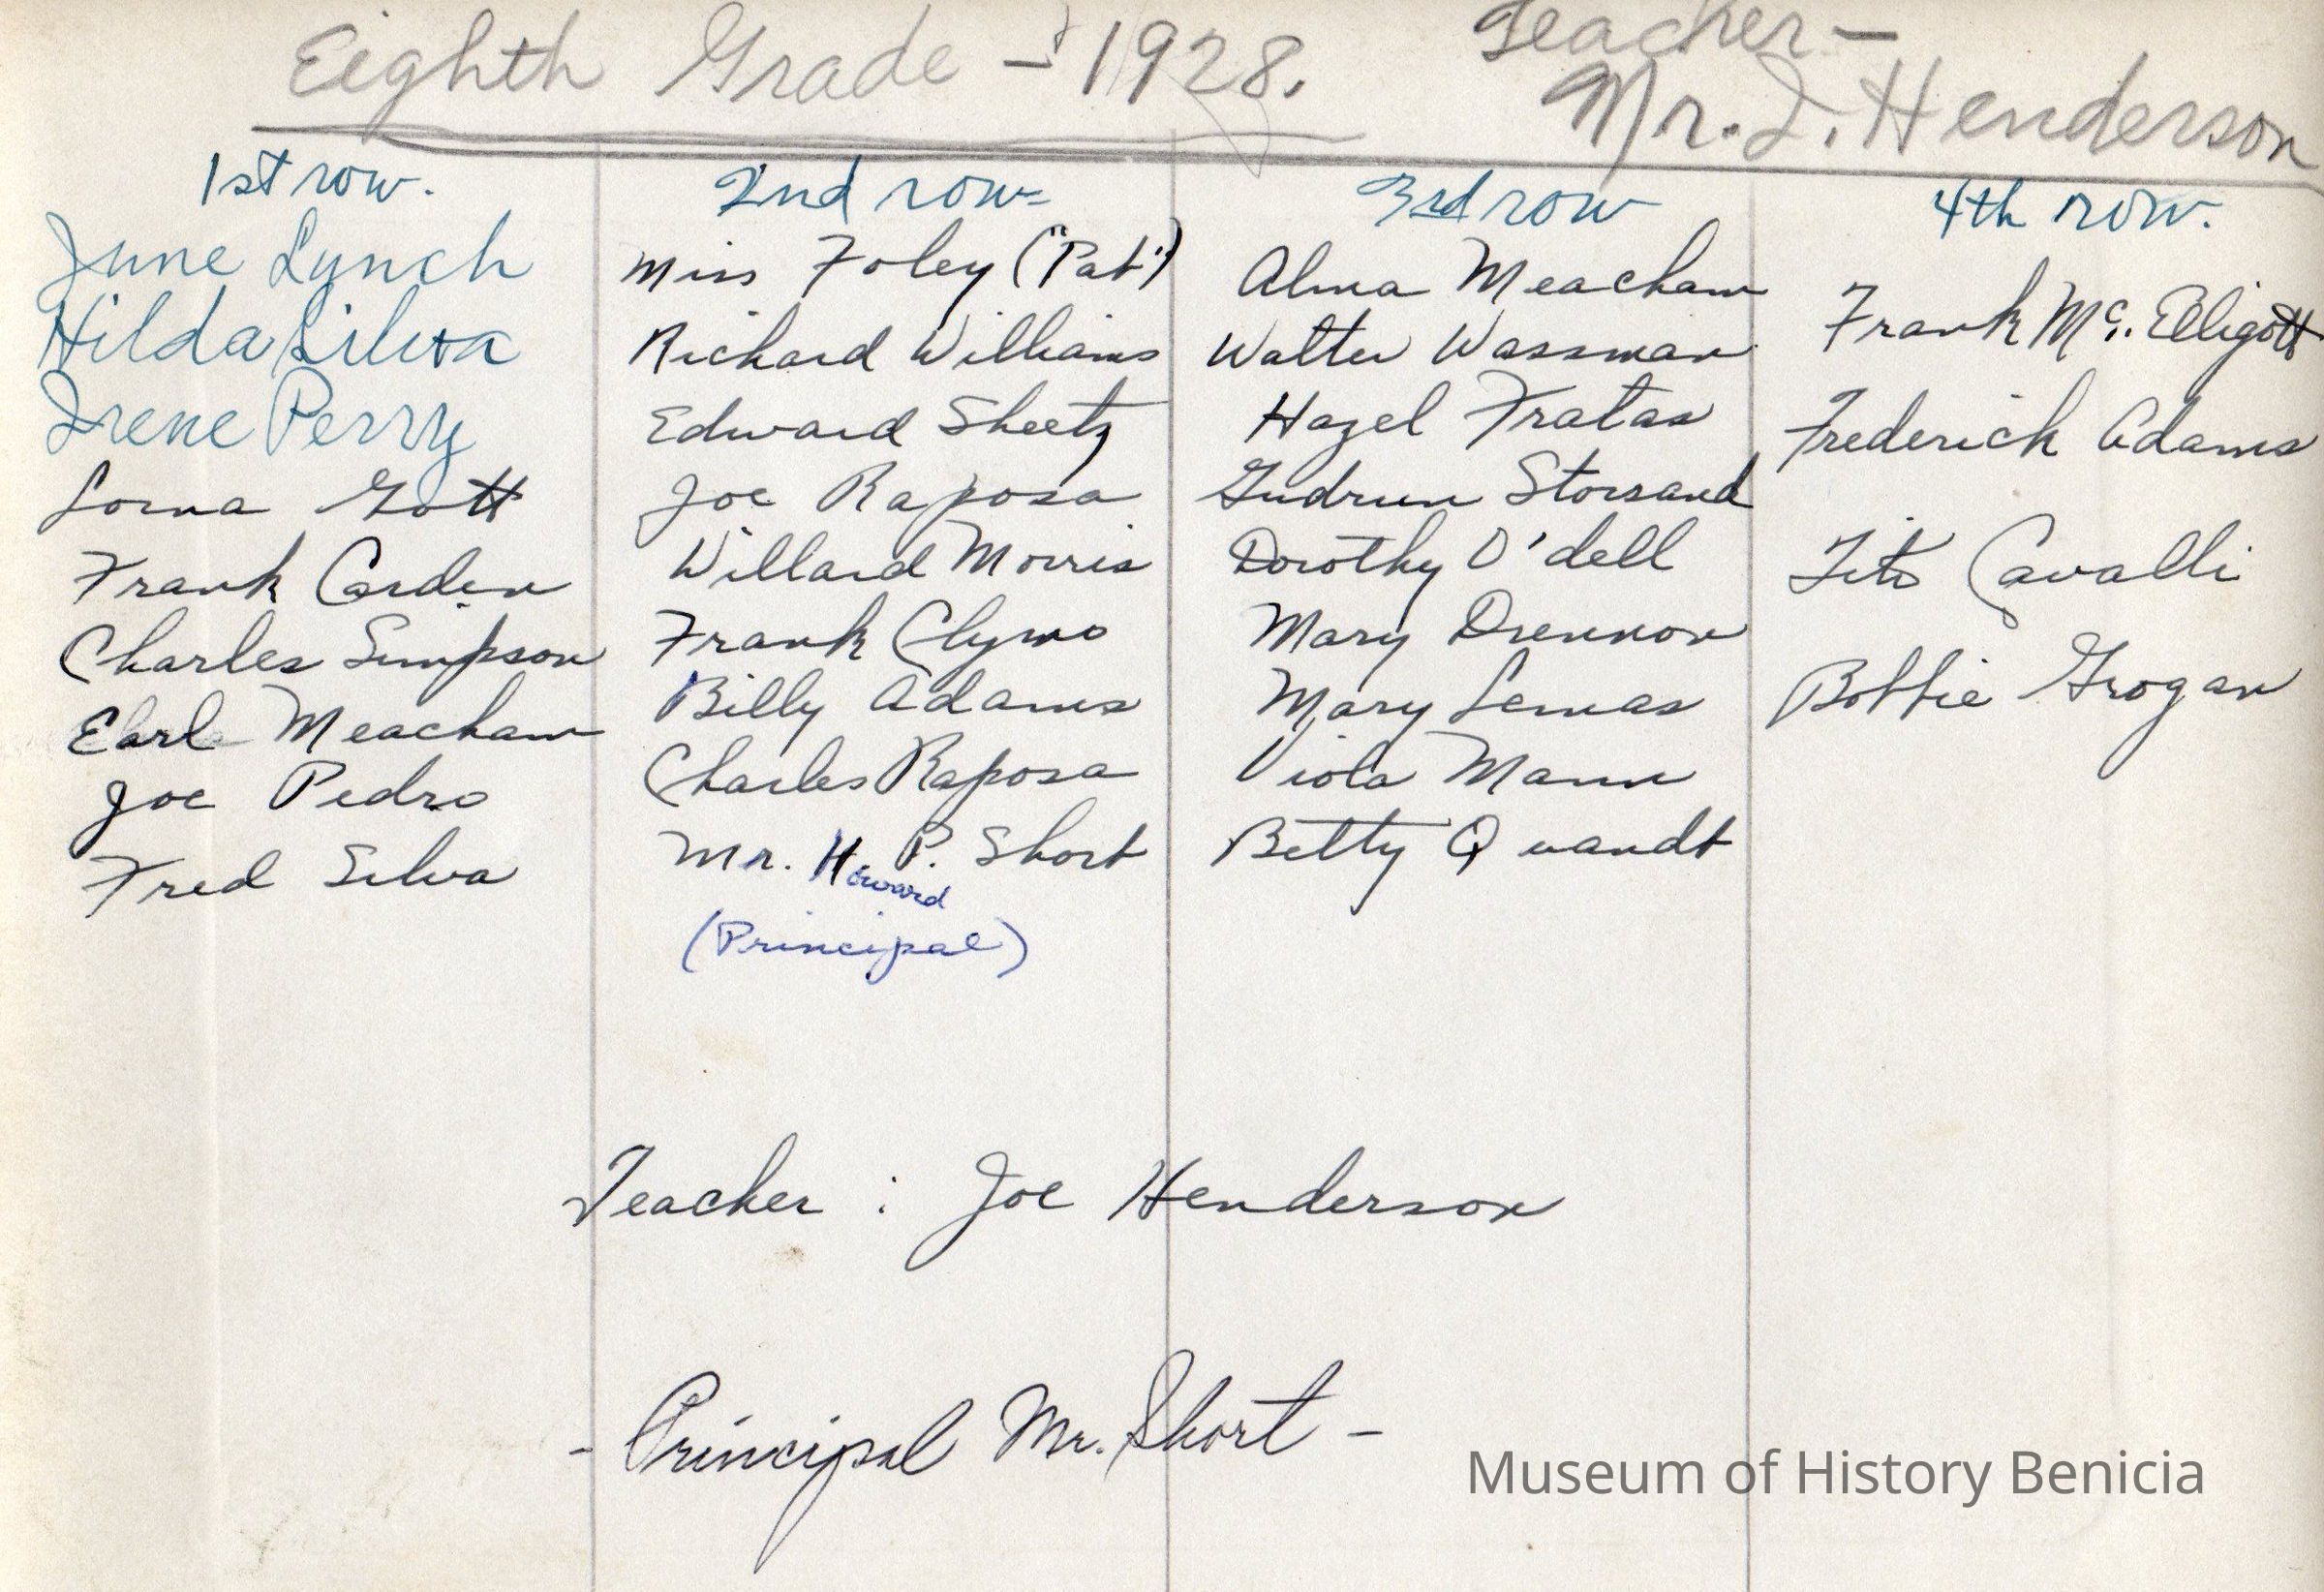 Eighth Grade - 1928.
Teacher -
Mr. J. Henderson
1st row.
June Lynch
Hilda Silva
Irene Perry
Lorna Gott
Frank Carden
Charles Simpson
Earl Meacham
Joe Pedro
Fred Silva
2nd row
Miss Foley ("Pat")
Richard Williams
Edward Sheetz
Joe Raposa
Willard Morris
Frank Clymo
Billy Adams
Charles Raposa
Mr. H. P. Short
Howard
(Principal)
3rd row
Alma Meacham
Walter Wassman
Hazel Fratas
Gudrun Storsand
Dorothy O'dell
Mary Drennon
Mary Lemas
Viola Mann
Betty Quandt
4th row.
Frank Mc. Elligott
Frederick Adams
Tito Cavalli
Bobbie Grogan
Teacher : Joe Henderson
- Principal Mr. Short -
Museum of History Benicia